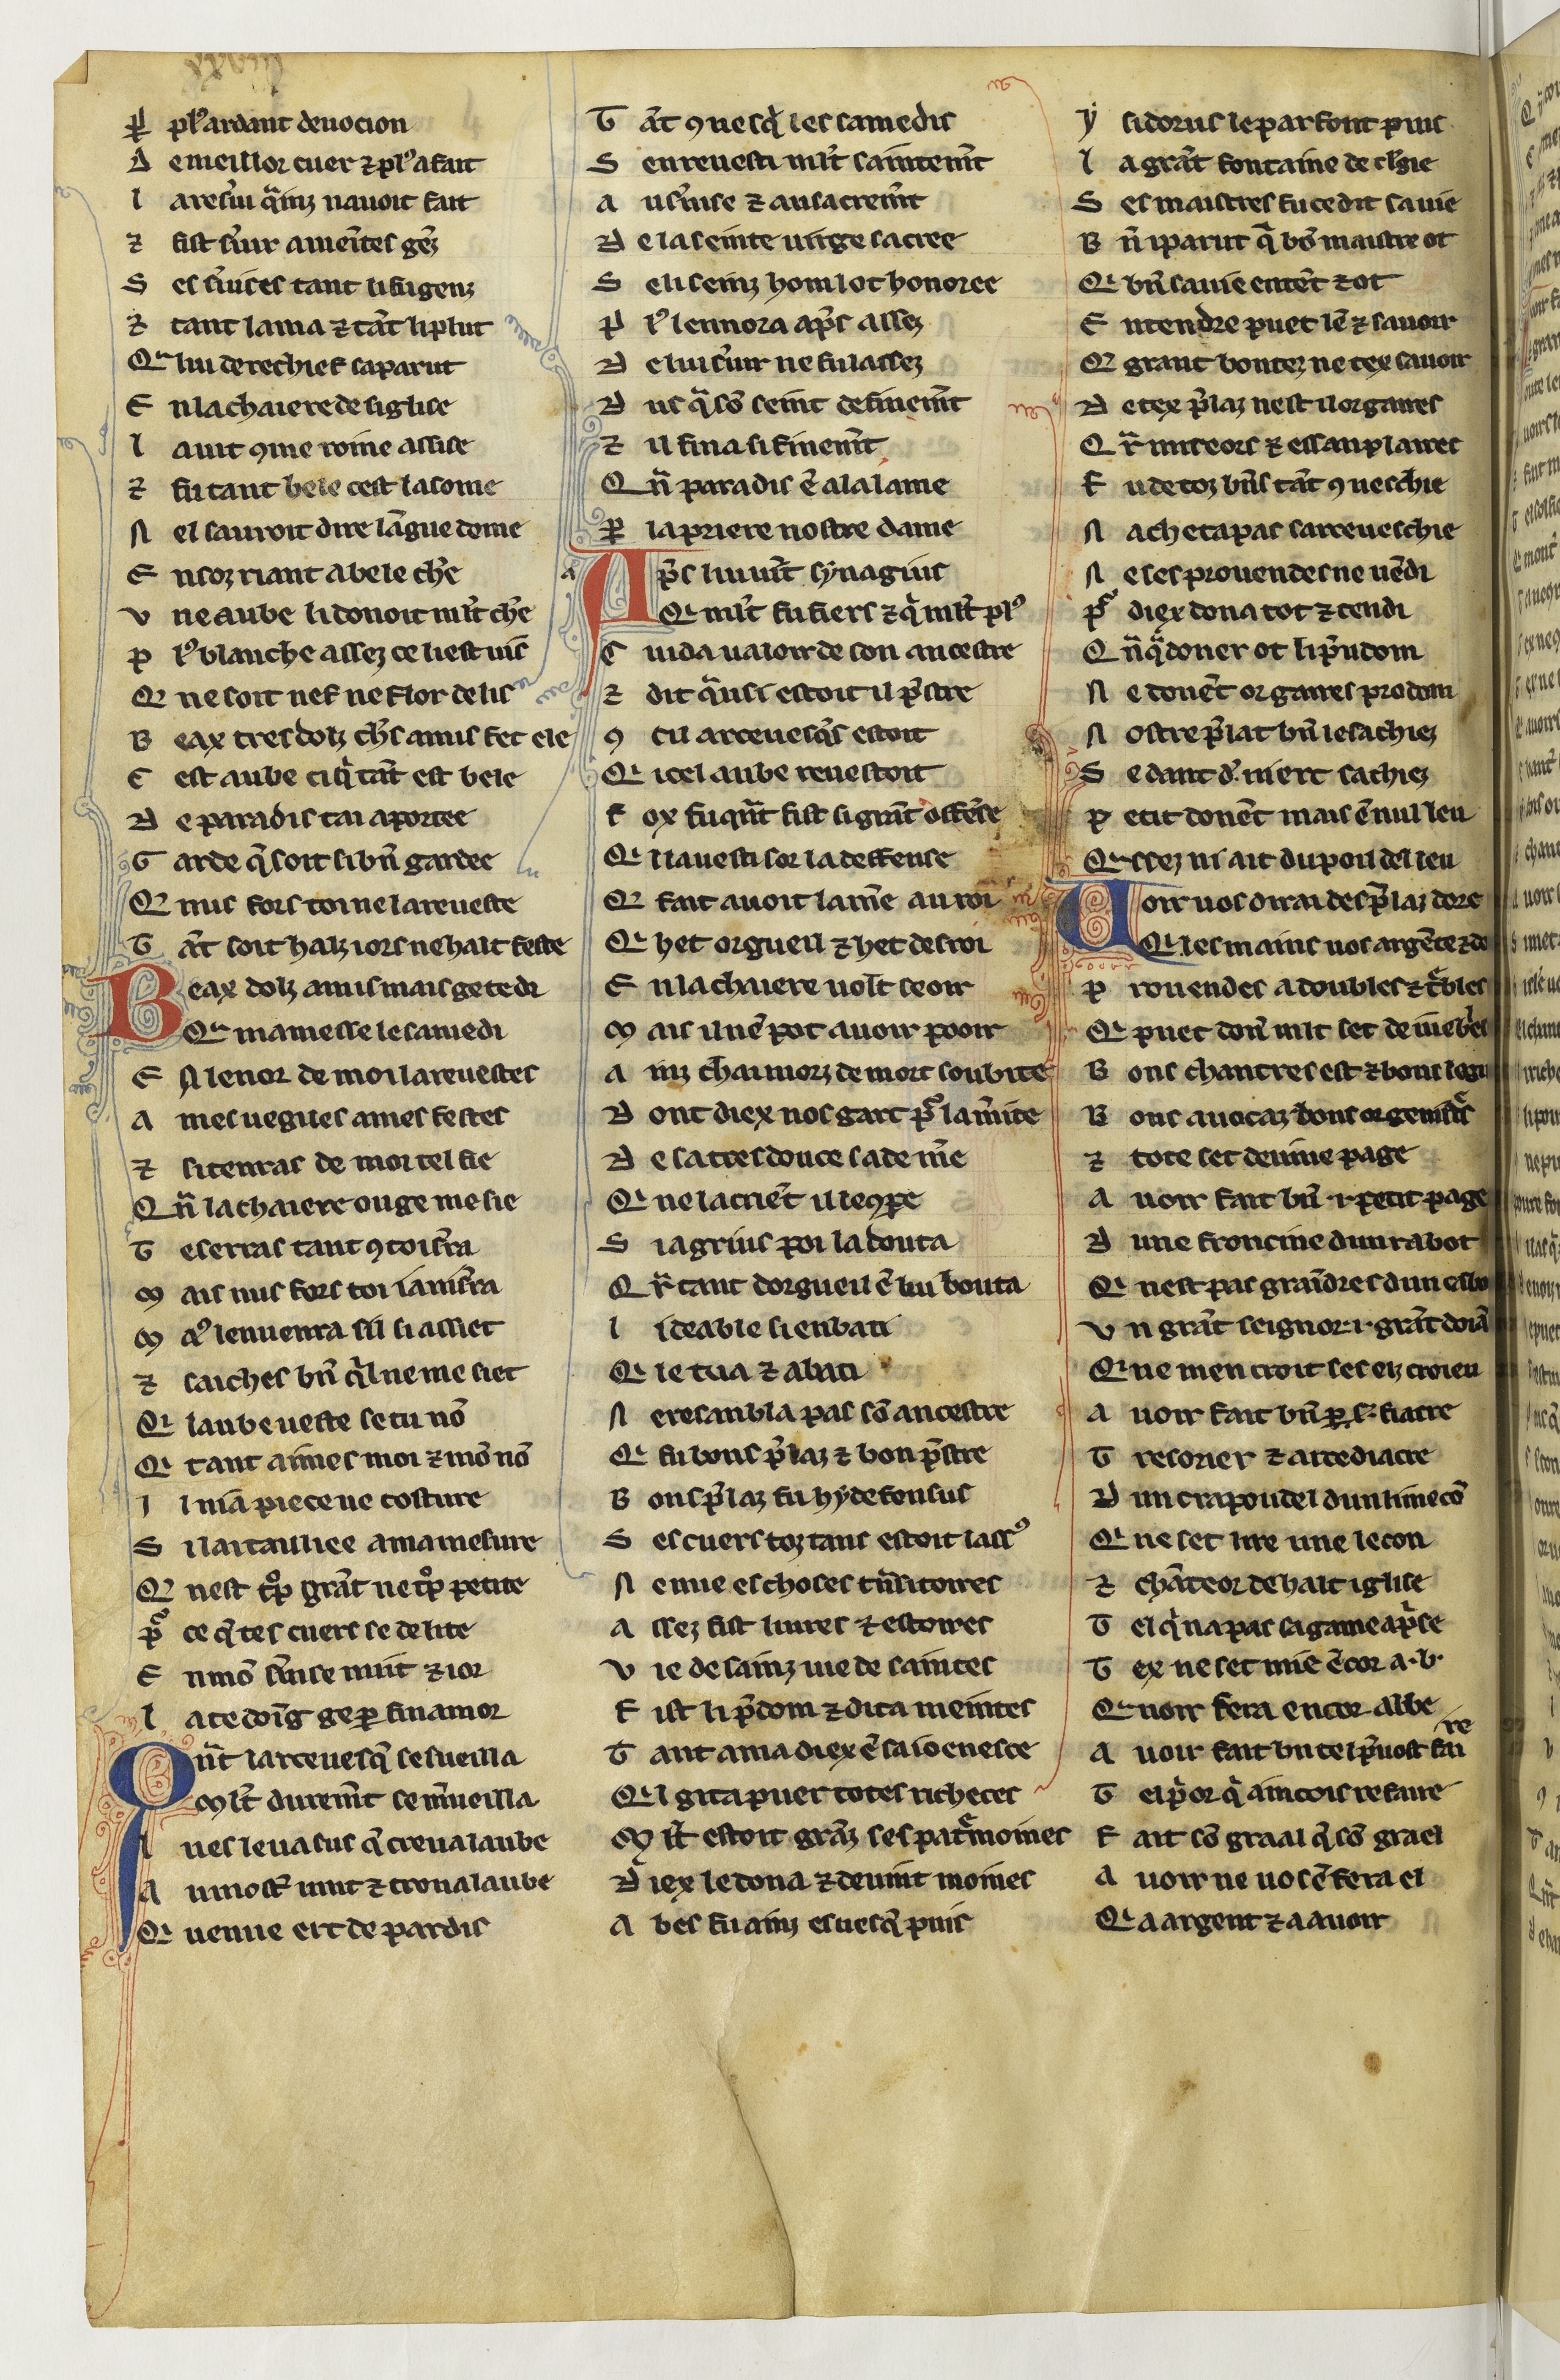 ꝑ plꝰ ardant deuocion
D e meillor cuer ⁊ plꝰ a fait
l a res̉ui q̉inz nauoit fait
⁊ fist s̉uir a menẽtes gẽz
S es s̉uises tant li fu genz
⁊ tant lama ⁊ tãt li plut
Q a lui de rechief saparut
E n la chaiere de siglise
l a uit ꝯme roine assise
⁊ fu tant bele cest la some
N el sauroit dire lãgue dome
E n sozriant a bele ch̉e
v ne aube li donoit ml̃t ch̉e
p lꝰ blanche assez ce li est uis
Q ne soit nef ne flor de lis
B eax tres dolz ch̉s amis fet ele
C est aube ci q̉ tãt est bele
D e paradis tai aportee
G arde q̃ soit si bñ gardee
Q nus fors toi ne la reueste
T ãt soit halz iors ne halt feste
B eax dolz amis mais ge te di
Q a ma messe le samedi
E N lenor de moi la reuestes
A mes uegiles a mes festes
⁊ si tenras de moi tel fie
Q ñ la chaiere ou ge me sie
T e serras tant ꝯ toi s̉ra
M ais nus fors toi ia ni s̉ra
M aꝰ lenuenra sil si assiet
⁊ saiches bñ q̉l ne me siet
Q laube ueste se tu nõ
Q tant aimes moi ⁊ mõ nõ
I l nia piece ne costure
S i lai tailliee a ma mesure
Q nest trop grãt ne trop petite
p̃ ce q̃ tes cuers se delite
E n mõ s̉uise nuit ⁊ ior
l a te doĩg ge ꝑ fin amor
Q ñt larceuesq̃ sesueilla
M l̃t durem̃t se m̉ueilla
l ues leua sus q̃ creua laube
A u mostier uint ⁊ troua laube
Q uenue ert de paradis
T ãt ꝯ uesq̃ les samedis
S en reuesti ml̃t saintem̃t
A us̉uise ⁊ au sacrem̃t
D e la seinte uirge sacree
S e li seinz hom lot honoree
p lꝰ lennora ap̃s assez
D e lui s̉uir ne fu lassez
D us q̃ sõ seint definem̃t
⁊ il fina si finem̃t
Q ñ paradis ẽ ala lame
ꝑ la priere nostre dame
A p̃s lui uint synagrius
Q ml̃t fu fiers ⁊ q̉ ml̃t plꝰ
C uida ualoir de son ancestre
⁊ dit q̃usi estoit il p̃stre
ꝯ cil arceuesq̃s estoit
Q icel aube reuestoit
F ox fu quãt fist si grãt offẽse
Q il la uesti sor la deffense
Q fait auoit la m̉e au roi
Q het orgueil ⁊ het desroi
E n la chaiere uolt seoir
M ais il nẽ pot auoir pooir
A inz chai morz de mort soubite
D ont diex nos gart p̃ la m̉ite
D e sa tres douce sade m̉e
Q ne la crient il le ꝯpe
S iagrius poi la douta
Q r̃ tant dorgueil ẽ lui bouta
l i deable si en bati
Q le tua ⁊ abati
N e resanbla pas sõ ancestre
Q fu bons p̃laz ⁊ bon p̃stre
B ons p̃laz fu hyldefonsus
S es cuers toz tans estoit lassꝰ
N e mie es choses trãsitoires
A ssez fist liures ⁊ estoires
V ie de sainz uie de saintes
F ist li p̃dom ⁊ dita meintes
T ant ama diex ẽ sa ioenesce
Q il gita puer totes richeces
M l̃t estoit grãz ses patrimoines
D iex le dona ⁊ deuint moines
A bes fu ainz esuesq̃ puis
Y sidorus le parfont puis
l a grãt fontaine de cl̉gie
S es maistres fu ce dit sa uie
B ñ i parut q̃ bõ maistre ot
Q bñ sa uie entẽt ⁊ ot
E ntendre puet lẽ ⁊ sauoir
Q grant bontez ne tex sauoir
D e tex p̃laz nest il or gaires
Q r̃ miteors ⁊ essanplaires
F u de toz bñs tãt ꝯ uesch̉ie
N acheta pas sarceueschie
N e ses prouendes ne uẽdi
p̃ diex dona tot ⁊ tendi
Q ñ q̃ doner ot li p̃udom
N e donẽt or gaires prodom
N ostre p̃lat bñ le sachiez
S e dant d̉. ni ert sachiez
p etit donẽt mais ẽ nul leu
Q assez ni ait du poil del leu
V oir uos dirai des p̃laz dore
Q les mains uos argẽte ⁊ do
p rouendes a doubles ⁊ tr̉bles
B ons chantres est ⁊ bons logi
B ons auocaz bons orgenistr̃
⁊ tote set deuine page
A uoir fait bñ .i. petit page
D une froncine dun rabot
Q nest pas graindres dun esbo
V n grãt seignor .i. grãt doiã
Q ne men croit ses elz croien
A uoir fait bñ ꝑ s. fiacre
T resorier ⁊ arcediacre
D un crapoudel dun limecõ
Q ne set lire une lecon
⁊ chãteor de halt iglise
T el q̉ na pas sa game ap̃se
T ex ne set mie ẽcor a. b.
Q auoir fera encor abbe
A uoir fait bñ tel p̃uost faire
T el p̃or q̃ aincois refaire
F ait sõ graal q̃ sõ grael
A uoir ne uos ẽ fera el
Q a argent ⁊ a auoir